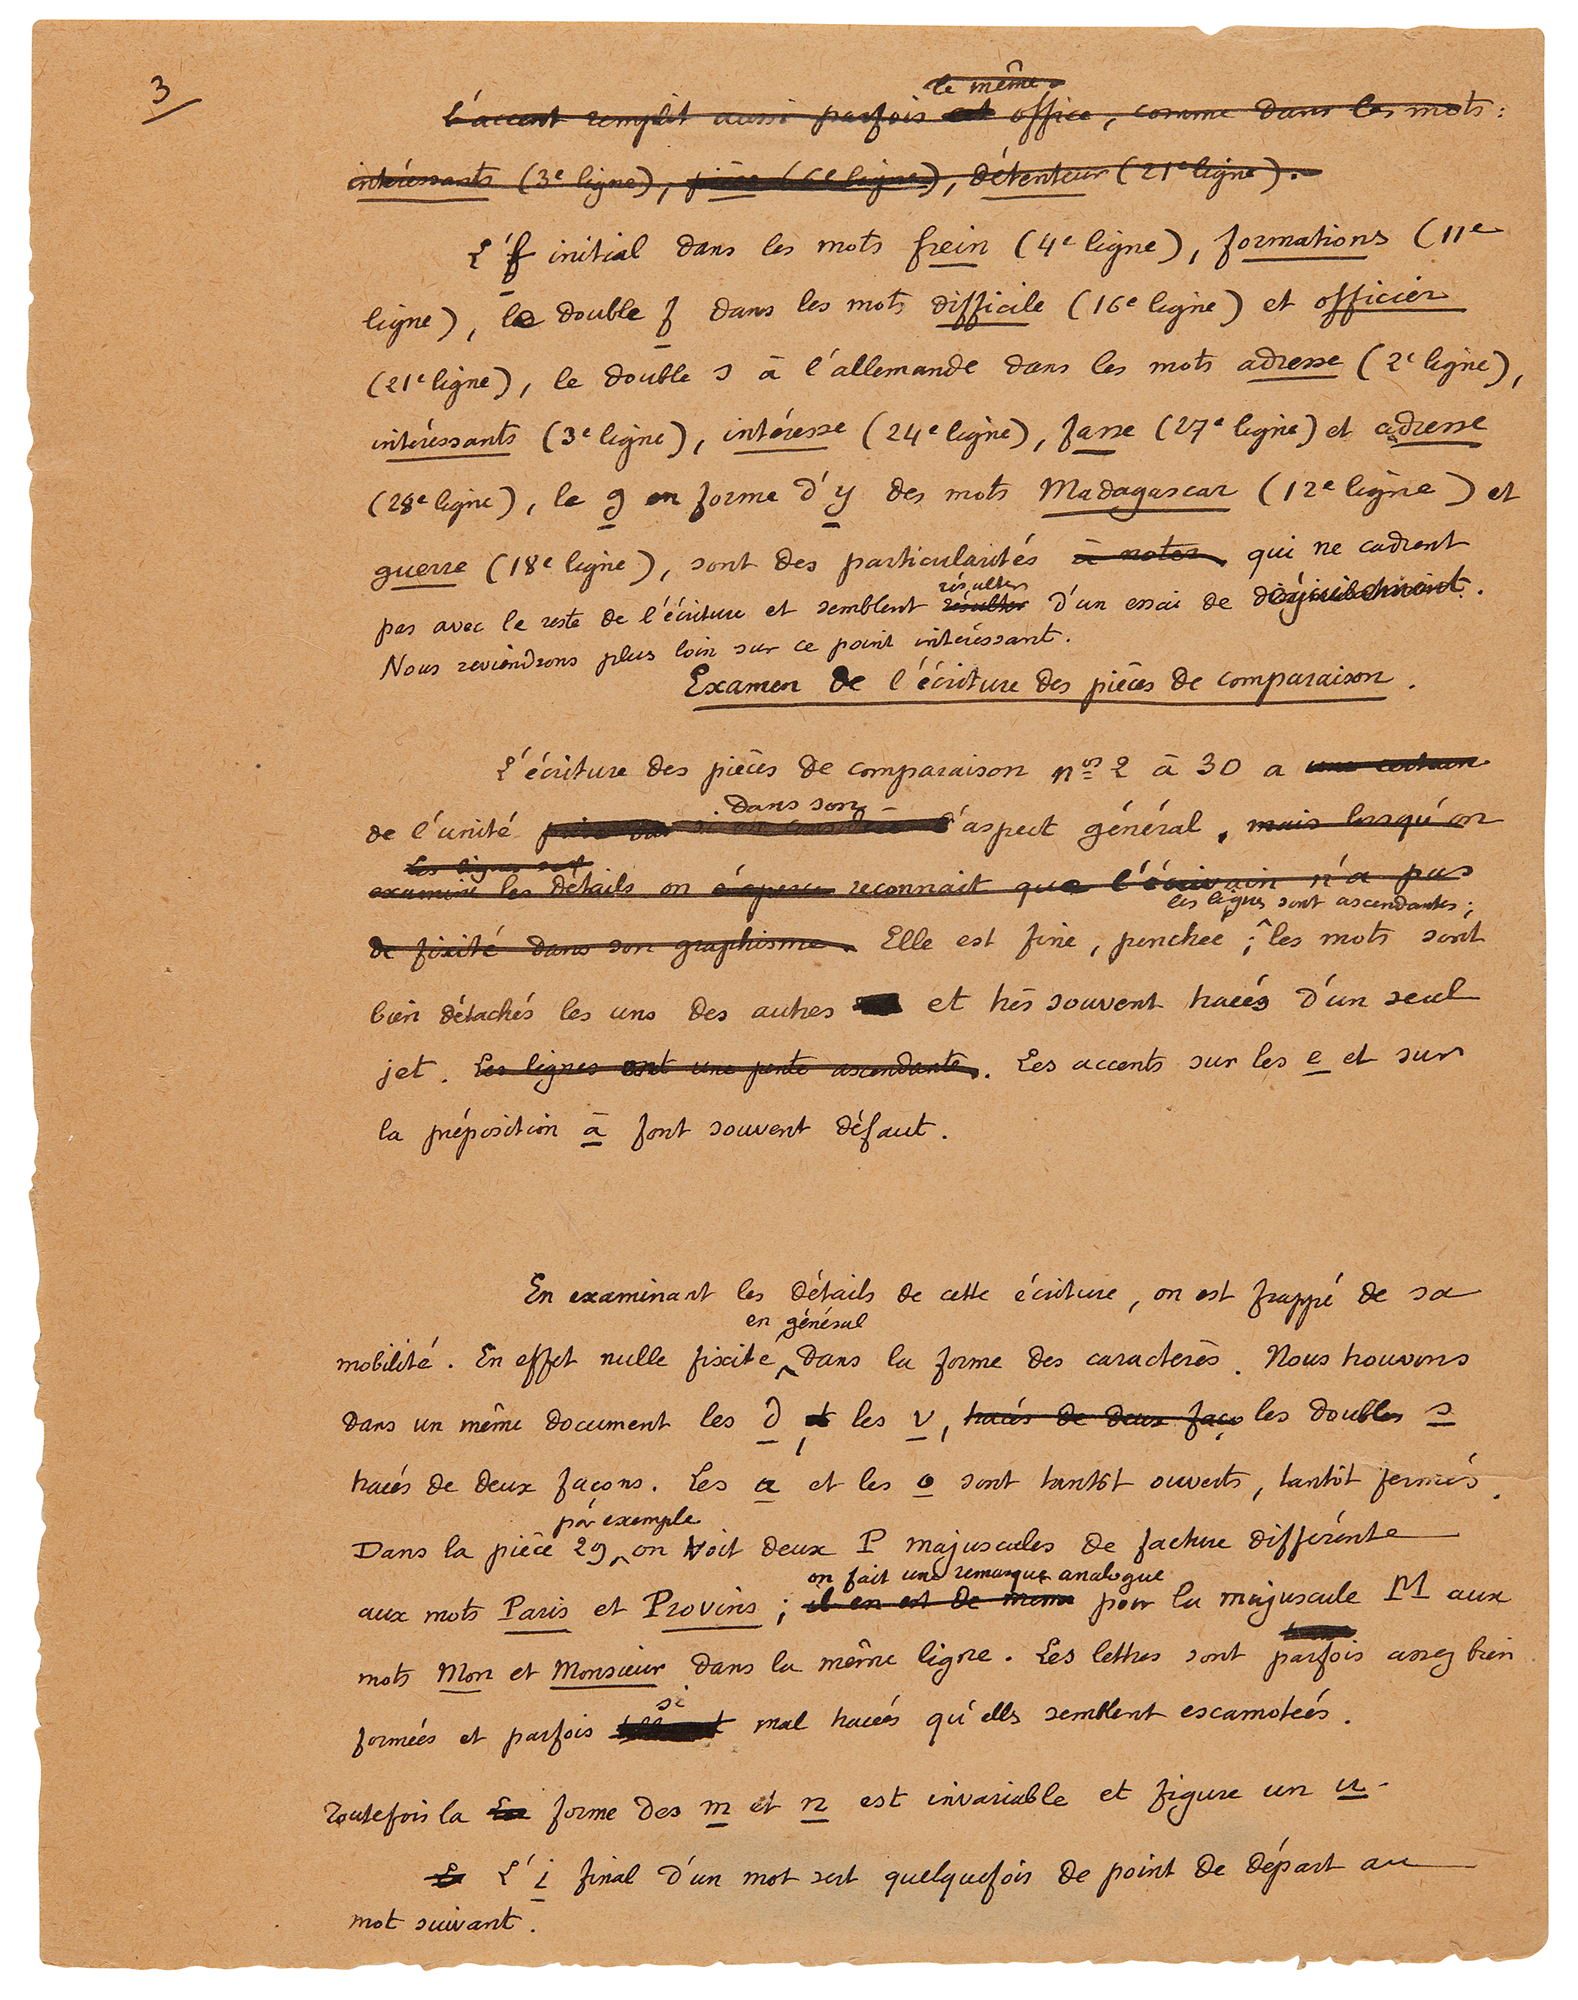 3
le même
l'accent remplit aussi parfois cet office, comme dans les mots :
intéressants (3e ligne), pièce (6e ligne), détenteur (21e ligne).
L'f initial dans les mots frein (4e ligne), formations (11e
ligne), le double f dans les mots difficile (16e ligne) et officier
(21e ligne), le double s à l'allemande dans les mots adresse (2e ligne),
intéressants (3e ligne), intéresse (24e ligne), fasse (27e ligne) et adresse
(28e ligne), le g en forme d'y des mots Madagascar (12e ligne) et
guerre (18e ligne), sont des particularités à noter qui ne cadrent
résulter
pas avec le reste de l'écriture et semblent résulter d'un essai de déguisement.
Nous reviendrons plus loin sur ce point intéressant.
Examen de l'écriture des pièces de comparaison.
L'écriture des pièces de comparaison nos 2 à 30 a une certain
dans son
de l'unité si on considère l'aspect général, mais lorsqu'on
Les lignes sont
examine les détails on s'aperçu reconnait que l'écrivain n'a pas
les lignes sont ascendantes ;
de fixité dans son graphisme. Elle est fine, penchée ; les mots sont
bien détachés les uns des autres et très souvent tracés d'un seul
jet. Les lignes ont une pente ascendante. Les accents sur les e et sur
la préposition à font souvent défaut.
En examinant les détails de cette écriture, on est frappé de sa
en général
mobilité. En effet nulle fixité dans la forme des caractères. Nous trouvons
dans un même document les d, et les v, tracés de deux faço les doubles s
tracés de deux façons. Les a et les o sont tantôt ouverts, tantôt fermés.
par exemple
Dans la pièce 29 on voit deux P majuscules de facture différente
on fait une remarque analogue
aux mots Paris et Provins ; il en est de même pour la majuscule M aux
mots Mon et Monsieur dans la même ligne. Les lettres sont parfois assez bien
si
formées et parfois mal tracées qu'elles semblent escamotées.
Toutefois la forme des m et n est invariable et figure un u.
L'i final d'un mot sert quelquefois de point de départ au
mot suivant.